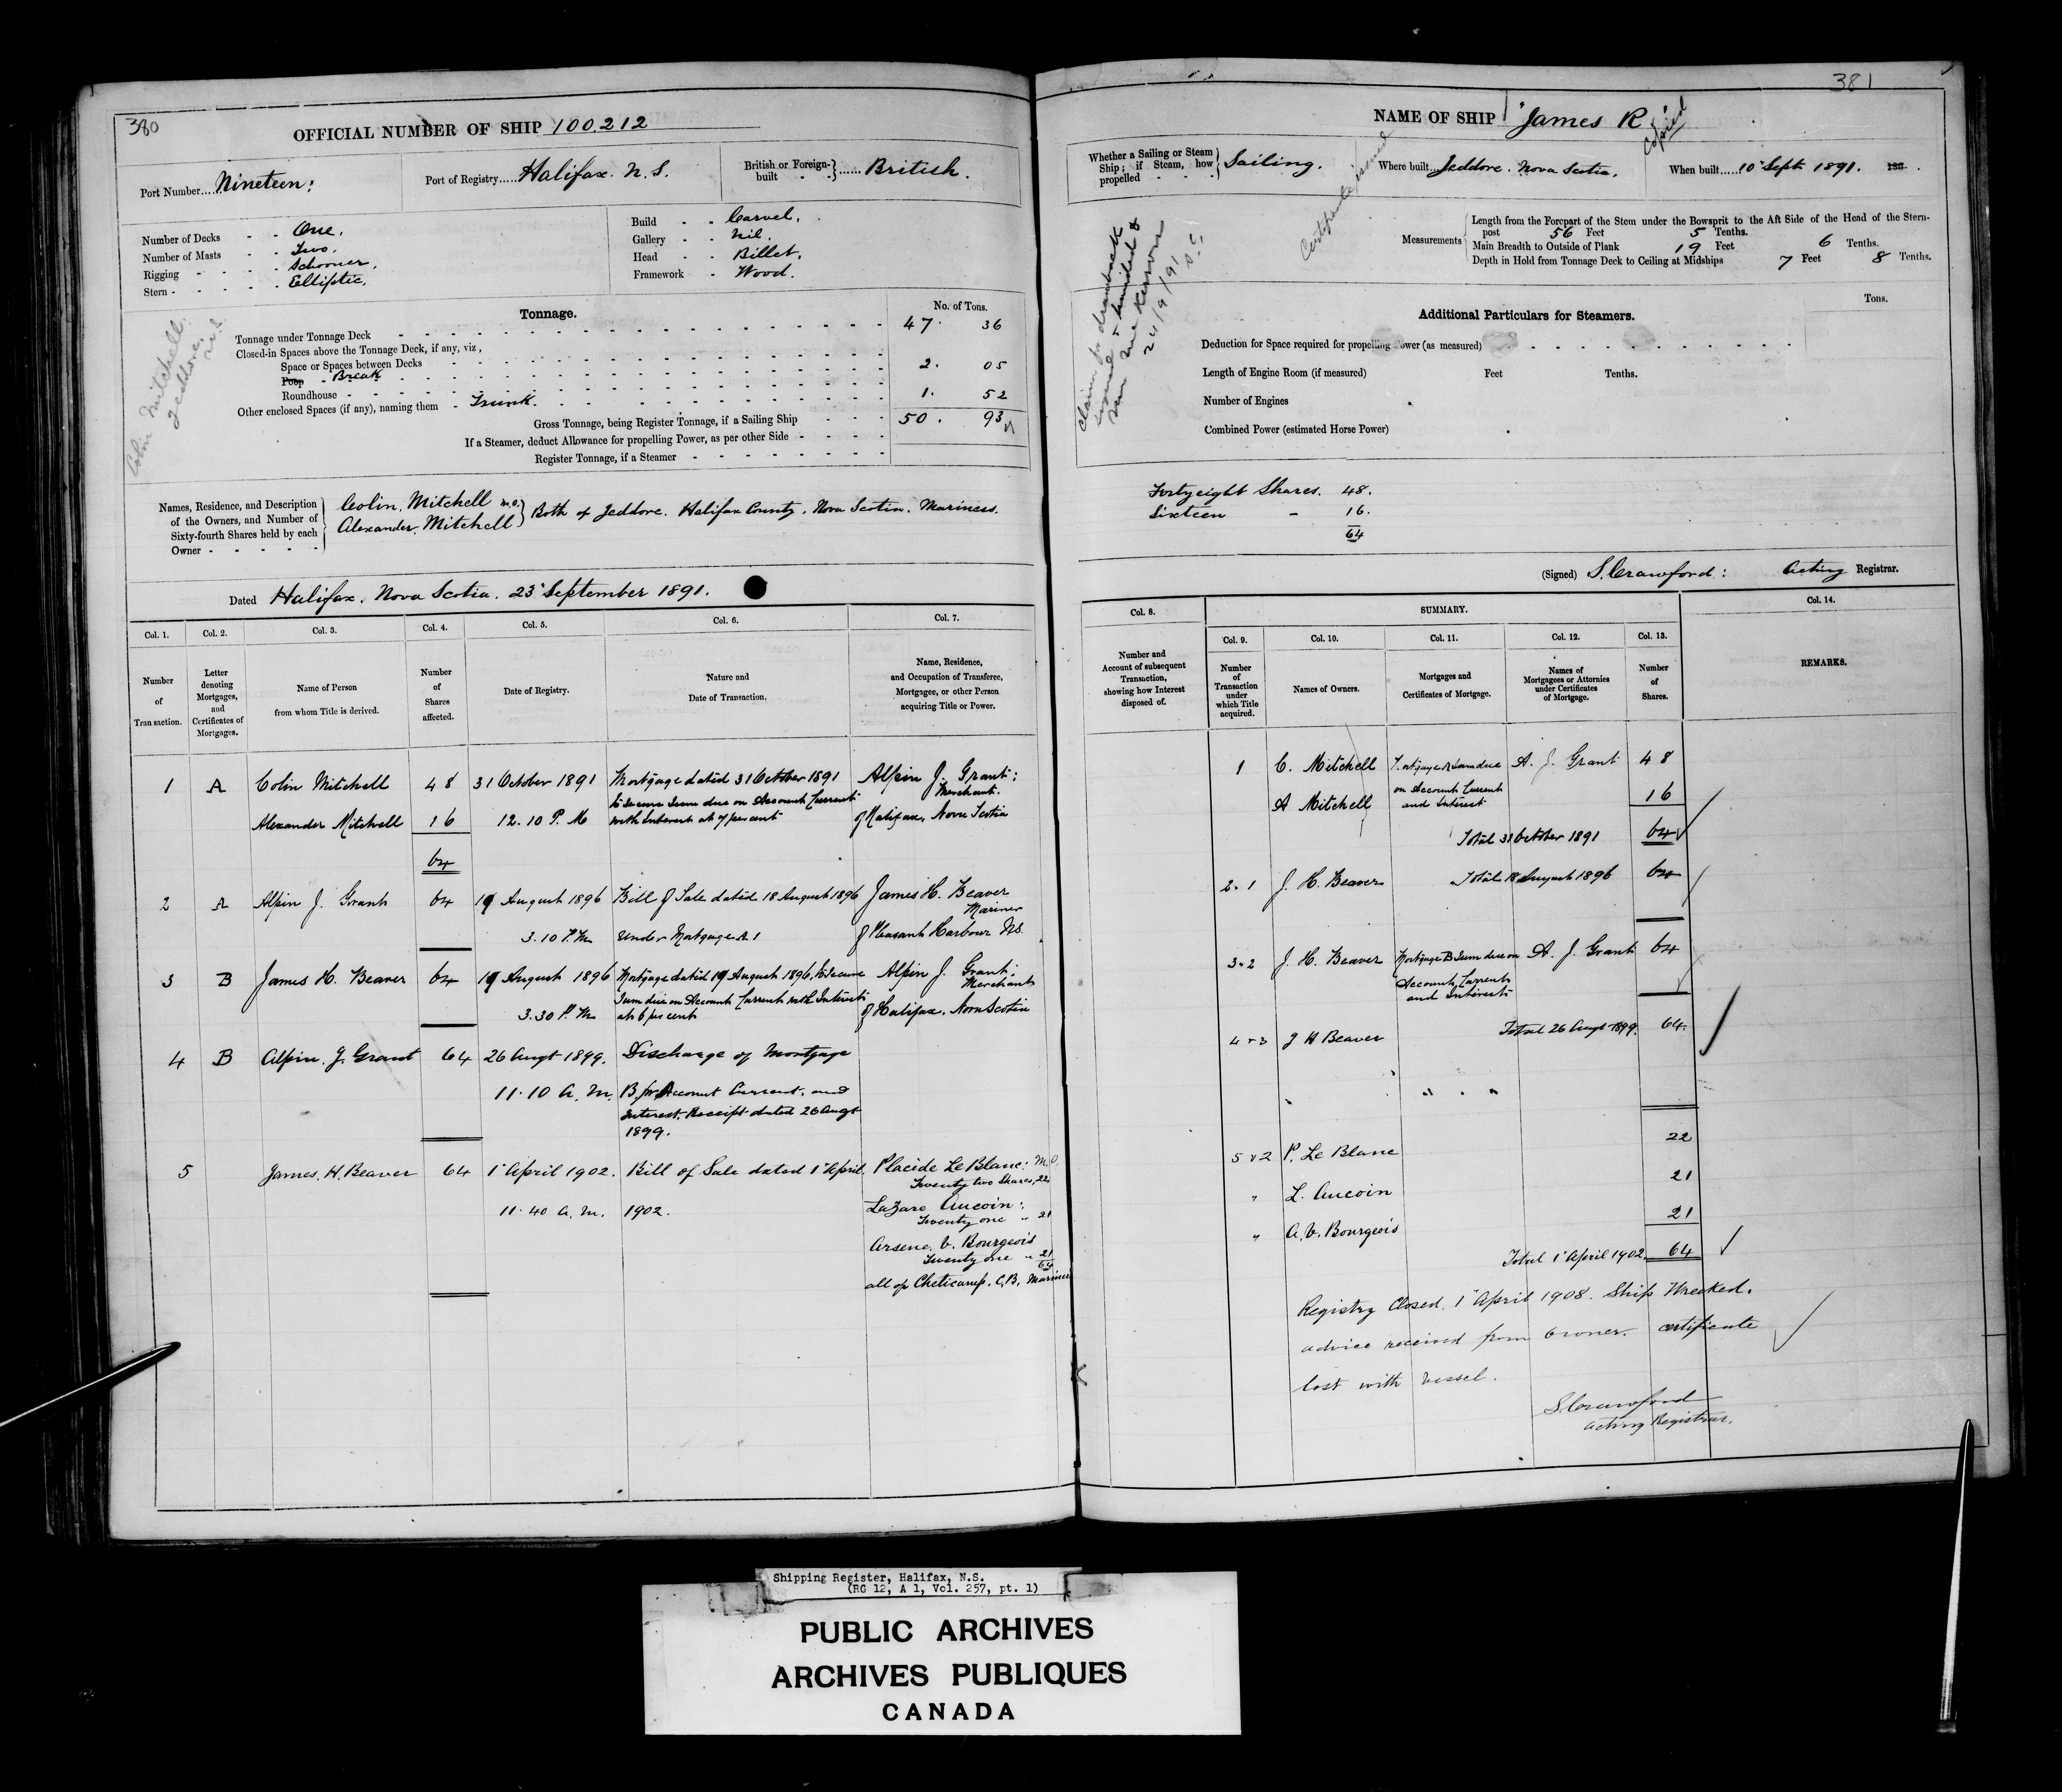 380
OFFICIAL NUMBER OF SHIP 100.212
Port Number....Nineteen:
Port of Registry.....Halifax. N. S.
British or Foreign-built - - }......British.
Number of Decks - - One.
Number of Masts - - Two.
Rigging - - - - Schooner.
Stern - - - - - Elliptic.
Build - - Carvel.
Gallery - - Nil.
Head - - Billet.
Framework - Wood.
Colin Mitchell
Jeddore.
N.S.
Tonnage.
No. of Tons.
Tonnage under Tonnage Deck 47. 36
Closed-in Spaces above the Tonnage Deck, if any, viz,
Space or Spaces between Decks
Poop - Break 2. 05
Roundhouse
Other enclosed Spaces (if any), naming them - Trunk. 1. 52
Gross Tonnage, being Register Tonnage, if a Sailing Ship 50. 93
If a Steamer, deduct Allowance for propelling Power, as per other Side
Register Tonnage, if a Steamer
Names, Residence, and Description of the Owners, and Number of Sixty-fourth Shares held by each Owner
Colin. Mitchell M.O.
Alexander. Mitchell } Both of Jeddore. Halifax County. Nova Scotia. Mariners.
Dated Halifax. Nova Scotia. 23 September 1891.
Col. 1. Col. 2. Col. 3. Col. 4. Col. 5. Col. 6. Col. 7.
Number of Transaction.
Letter denoting Mortgages, and Certificates of Mortgages.
Name of Person from whom Title is derived.
Number of Shares affected.
Date of Registry.
Nature and Date of Transaction.
Name, Residence, and Occupation of Transferee, Mortgagee, or other Person acquiring Title or Power.
1 A Colin Mitchell 48 31 October 1891 Mortgage dated 31 October 1891 Alpin J. Grant: Merchant.
to secure Sum due on Account Current
Alexander Mitchell 16 12.10 P. M with Interest at 7 per cent of Halifax, Nova Scotia
64
2 A Alpin J. Grant 64 19 August 1896 Bill of Sale dated 18 August 1896 James H. Beaver
Mariner
3.10 P.M. Under Mortgage A 1 of Pleasant Harbour NS.
3 B James H. Beaver 64 19 August 1896 Mortgage dated 19 August 1896, to Secure Alpin J. Grant; Merchant
Sum due on Account Current with Interest
3.30 P. M. at 6 per cent of Halifax, Nova Scotia
4 B Alpin. J. Grant 64 26 Augt 1899. Discharge of Mortgage
11.10 A. M. B, for Account Current, and
Interest. Receipt dated 26 Augt
1899.
5 James. H. Beaver 64 1 April 1902. Bill of Sale dated 1 April Placide Le Blanc: M.O.
Twenty two Shares, 22
11.40 A. M. 1902. Lazare Aucoin:
Twenty one " 21
Arsene. C. Bourgeois
Twenty one " 21
64
all of Cheticamp. C.B. Mariners
381
NAME OF SHIP "James R
Copied
Whether a Sailing or Steam Ship; if Steam, how propelled } Sailing.
Where built..Jeddore. Nova Scotia.
When built.....10 Sept 1891. 188 .
Certificate issued
Claim for drawback
signed & handed to
24/9/91
S.C.
Measurements
Length from the Forepart of the Stem under the Bowsprit to the Aft Side of the Head of the Stern-
post 56 Feet 5 Tenths.
Main Breadth to Outside of Plank 19 Feet 6 Tenths.
Depth in Hold from Tonnage Deck to Ceiling at Midships 7 Feet 8 Tenths.
Additional Particulars for Steamers.
Tons.
Deduction for Space required for propelling Power (as measured)
Length of Engine Room (if measured) Feet Tenths.
Number of Engines
Combined Power (estimated Horse Power)
Forty eight Shares. 48.
Sixteen - 16.
64
(Signed) S. Crawford: Acting Registrar.
Col. 8. SUMMARY. Col. 14.
Col. 9. Col. 10. Col. 11. Col. 12. Col. 13.
Number and Account of subsequent Transaction, showing how Interest disposed of.
Number of Transaction under which Title acquired.
Names of Owners.
Mortgages and Certificates of Mortgage.
Names of Mortgagees or Attornies under Certificates of Mortgage.
Number of Shares.
REMARKS.
1 C. Mitchell Mortgage A Sum due A. J. Grant 48
on Account Current
A Mitchell and Interest 16
Total 31 October 1891 64
2.1 J. H. Beaver Total 18 August 1896 64
3.2 J. H. Beaver Mortgage B Sum due on A. J. Grant 64
Account Current
and Interest
4 3 J H Beaver Total 26 Augt 1899. 64.
5 2 P. Le Blanc 22
" L. Aucoin 21
" A. C. Bourgeois 21
Total 1 April 1902. 64
Registry Closed. 1 April 1908. Ship Wrecked.
advice received from Owner. certificate
lost with vessel.
S. Crawford
Acting Registrar.
Shipping Register, Halifax, N.S.
(RG 12, A 1, Vol. 257, pt. 1)
PUBLIC ARCHIVES
ARCHIVES PUBLIQUES
CANADA